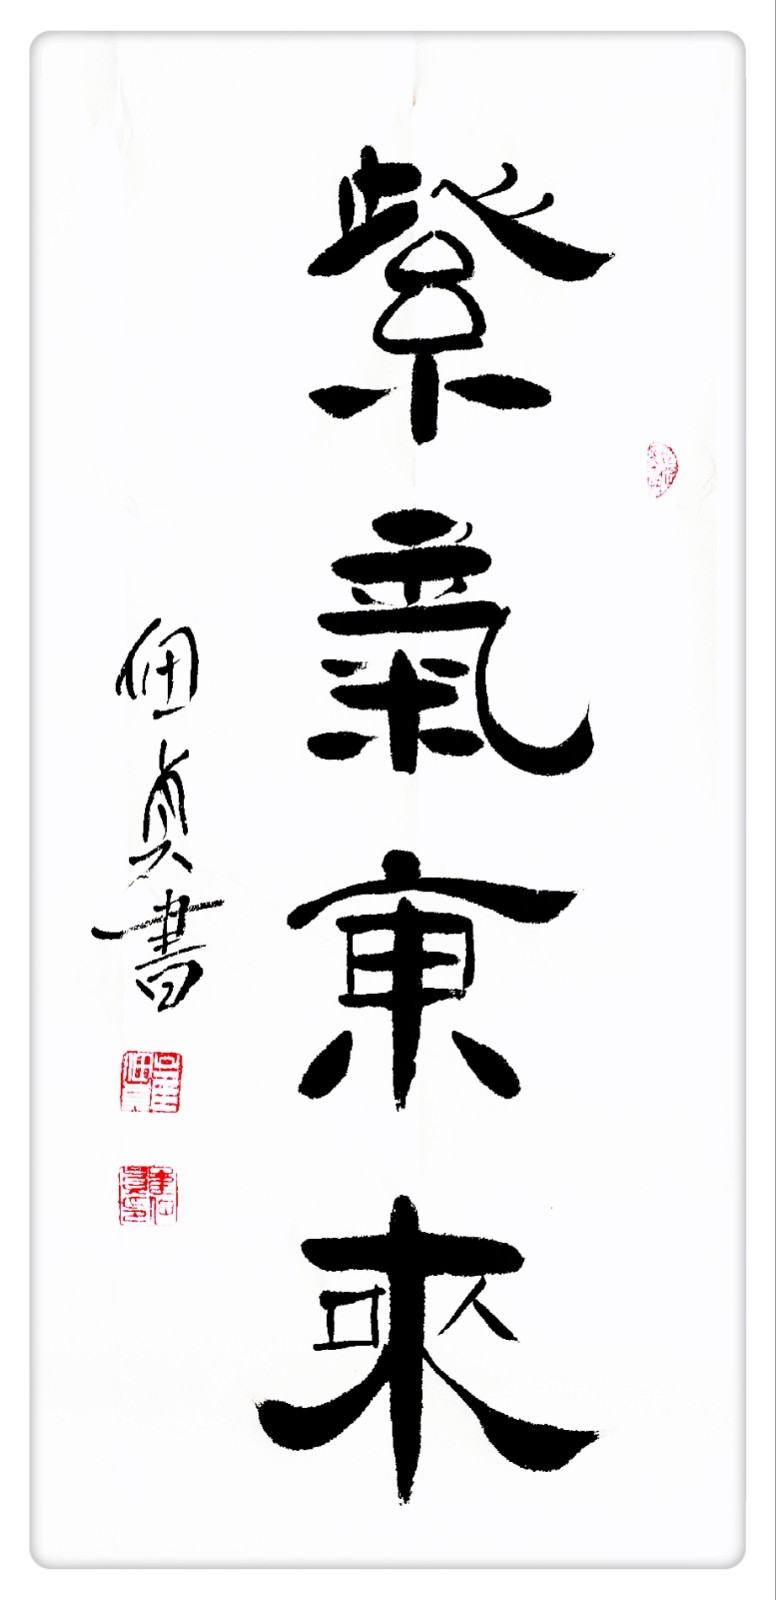 紫氣東來
貞書